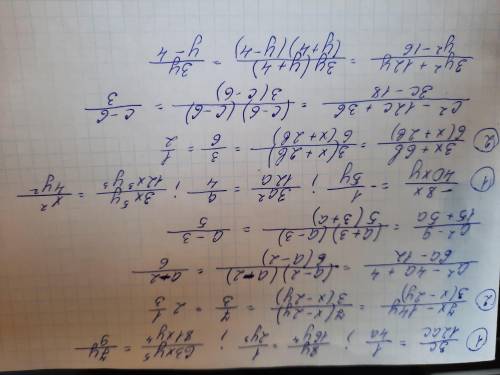 ① 3c/12ac = 1/4a ; 8y/16y⁴ = 1/2y³ ; 63xy⁵/81xy⁴ = 7y/9
② (7x-14y)/(3(x-2y)) = 7(x-2y)/(3(x-2y)) = 7/3 = 2 1/3
(a²-4a+4)/(6a-12) = (a-2)(a-2)/(6(a-2)) = (a-2)/6
(a²-9)/(15+5a) = (a+3)(a-3)/(5(3+a)) = (a-3)/5
① -8x/40xy = -1/5y ; 3a²/12a = a/4 ; 3x⁵y/12x³y³ = x²/4y²
② (3x+6b)/(6(x+2b)) = 3(x+2b)/(6(x+2b)) = 3/6 = 1/2
(c²-12c+36)/(3c-18) = (c-6)(c-6)/(3(c-6)) = (c-6)/3
(3y²+12y)/(y²-16) = 3y(y+4)/((y+4)(y-4)) = 3y/(y-4)